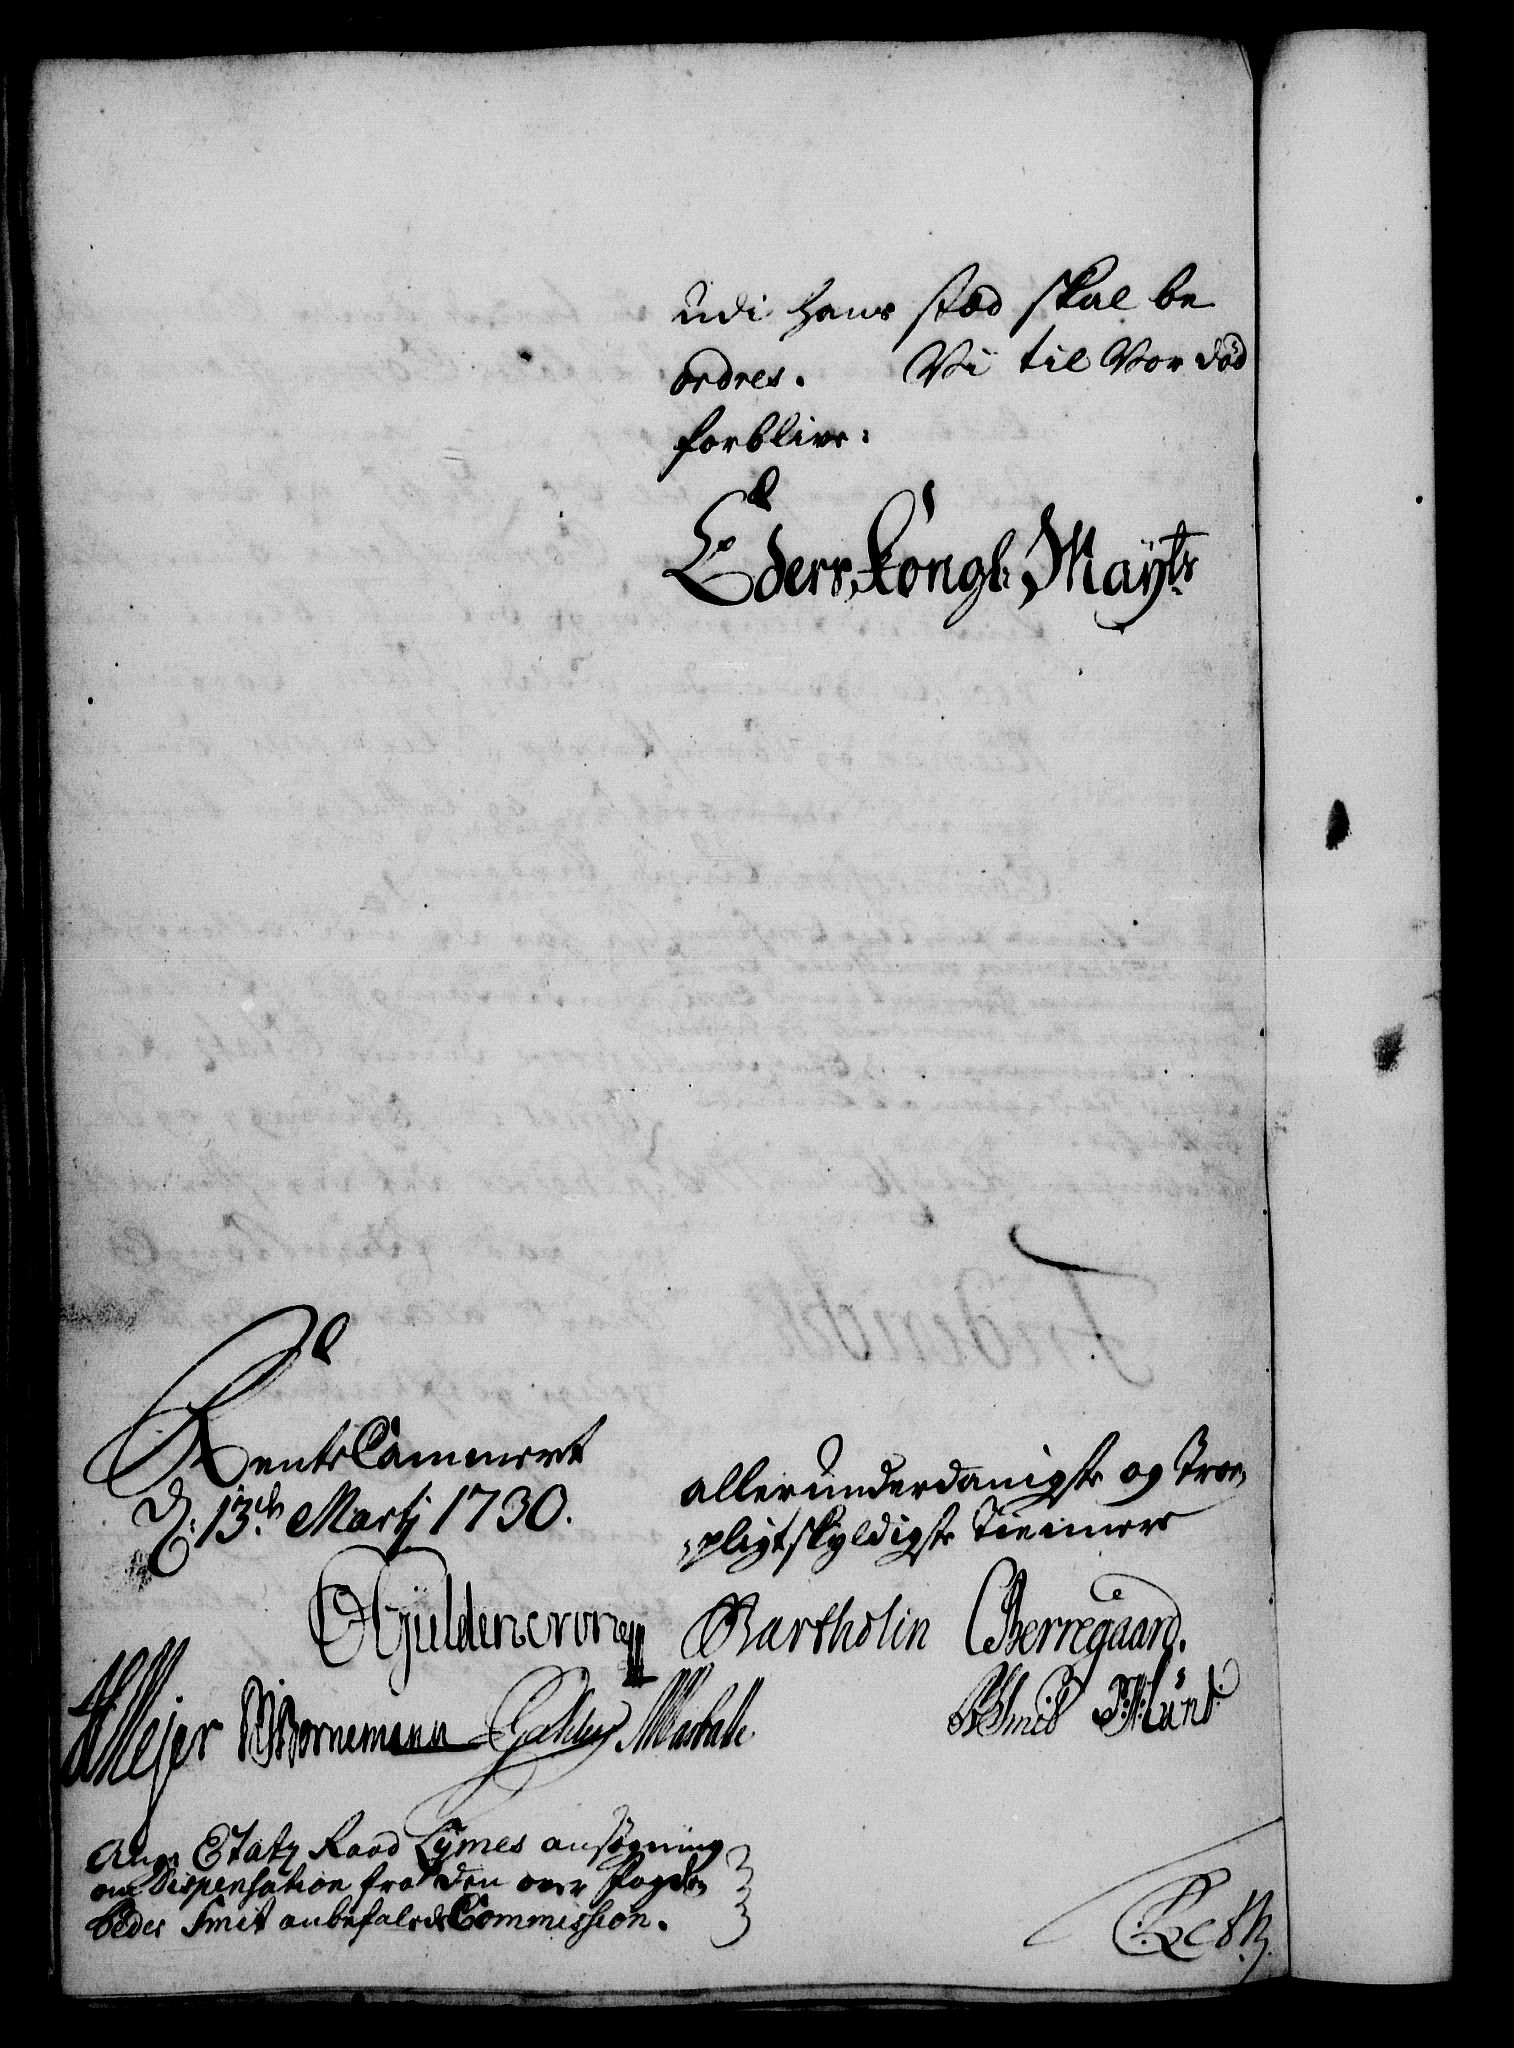 udi hans stæd skal be
ordres. Vi til Vor död
forblive:
Eders Kongl: Mayts
RenteCammeret
D: 13de Martj 1730.
allerunderdanigste og Troe
pligtskyldigste Tienere
Güldencrone Bartholin CBerregaard.
HMejer Bornemann
Ang: Etatz Raad Lÿmes ansögning
om Dispensation fra den over fogden
Peder Smit anbefalede Commission.